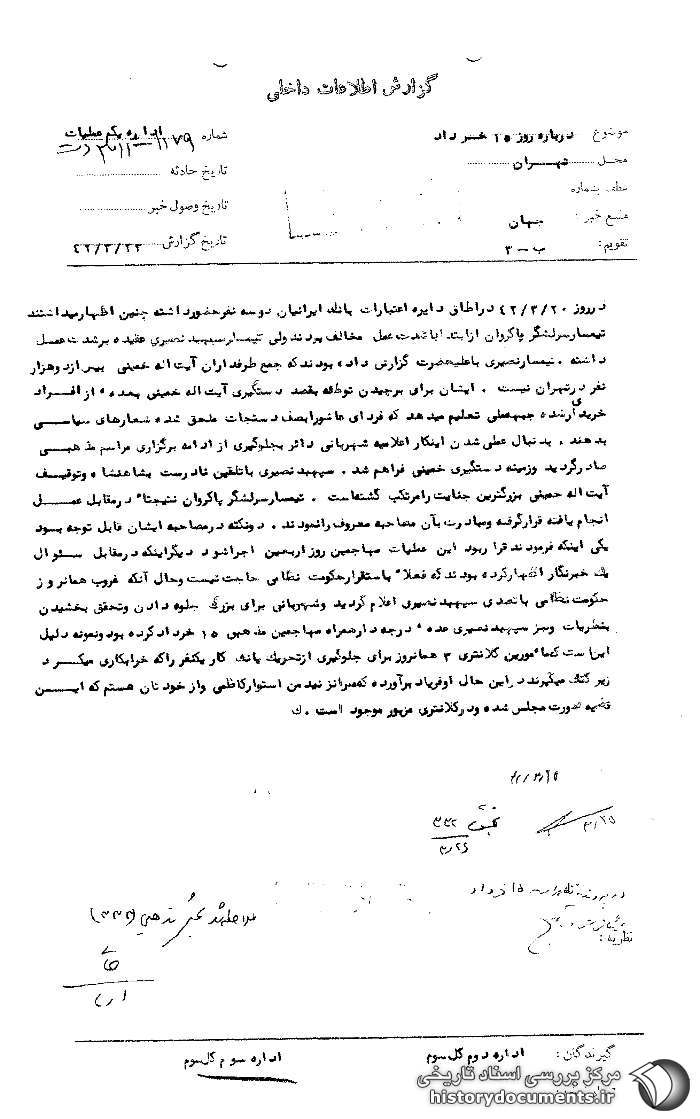 گزارش اطلاعات داخلی
موضوع درباره روز ۱۵ خرداد
محل تهران
منبع خبر : جهان
تقویم : ب - ۳
شماره اداره یکم عملیات
تاریخ حادثه
تاریخ وصول خبر
تاریخ گزارش ۴۲/۳/۲۳
در روز ۴۲/۳/۲۰ در اطاق دایره اعتبارات بانک ایرانیان دو سه نفر حضور داشته چنین اظهار میداشتند
تیمسار سرلشگر پاکروان از ابتدا با شدت عمل مخالف بودند ولی تیمسار سپهبد نصیری عقیده بر شدت عمل
داشته . تیمسار نصیری باعلیحضرت گزارش داده بودند که جمع طرفداران آیت اله خمینی بیش از دو هزار
نفر در تهران نیست . ایشان برای برچیدن توطئه بقصد دستگیری آیت اله خمینی بعده ء از افراد
خریداری شده جبهملی تعلیم میدهد که فردای عاشورا بصف دستجات ملحق شده شعارهای سیاسی
بدهند . بدنبال عملی شدن اینکار اعلامیه شهربانی دائر بجلوگیری از ادامه برگزاری مراسم مذهبی
صادر گردید وزمینه دستگیری خمینی فراهم شد . سپهبد نصیری باتلقین نادرست بشاهنشاه وتوقیف
آیت اله خمینی بزرگترین جنایت رامرتکب گشته‌است . تیمسار سرلشگر پاکروان نتیجتا" در مقابل عمل
انجام یافته قرارگرفته ومبادرت بآن مصاحبه معروف رانمودند . دونکته در مصاحبه ایشان قابل توجه بود
یکی اینکه فرمودند قرار بود این عملیات مهاجمین روز اربعین اجرا شود دیگر اینکه در مقابل سئوال
یک خبرنگار اظهار کرده بودند که فعلا" باستقرار حکومت نظامی حاجت نیست وحال آنکه غروب همانروز
حکومت نظامی باتصدی سپهبد نصیری اعلام گردید وشهربانی برای بزرگ جلوه دادن وتحقق بخشیدن
بنظریات وسیر سپهبد نصیری عده ء درجه دار همراه مهاجمین مذهبی ۱۵ خرداد کرده بود ونمونه دلیل
این است که مأمورین کلانتری ۳ همانروز برای جلوگیری از تحریک یک نفر راکه خرابکاری میکرد
زیر کتک میگیرند در این حال او فریاد برآورده که مرا نزنید من استوار کاظمی واز خودتان هستم که این
قضیه صورت مجلس شده ودر کلانتری مزبور موجود است . ک
۳/۲۵
۳/۲۶
در پرونده تظاهرات ۱۵ خرداد
نظریه :
گیرندگان : اداره دوم کل سوم
اداره سوم کل سوم
مرکز بررسی اسناد تاریخی
historydocuments.ir